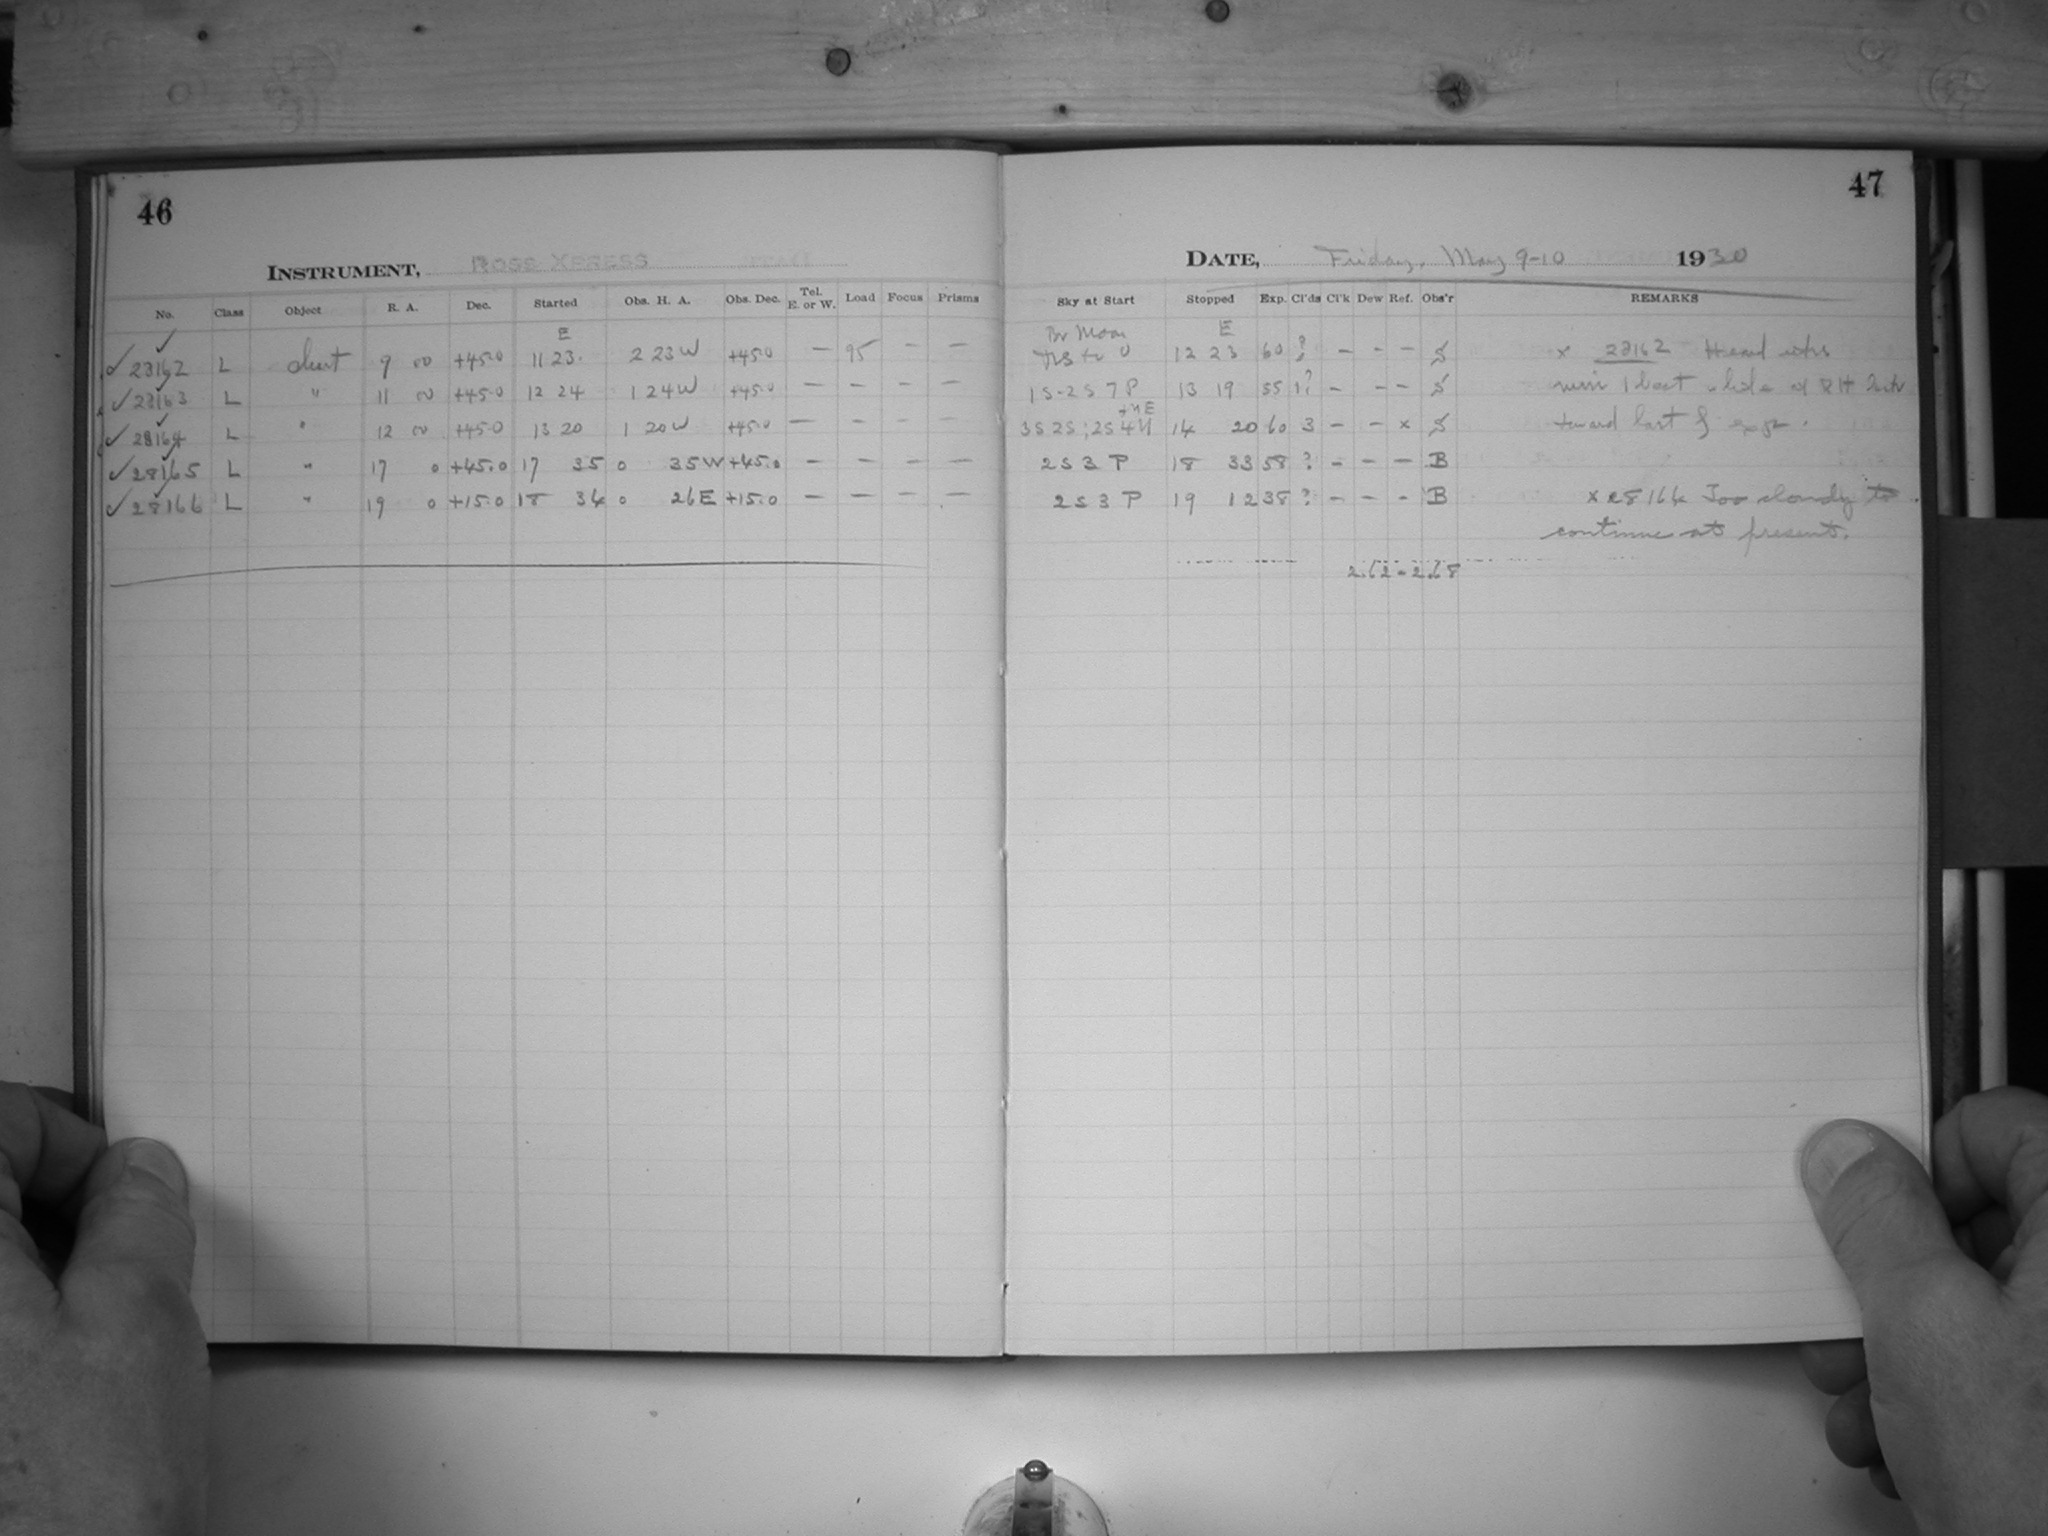 46
47
INSTRUMENT, ROSS XPRESS
DATE, Friday, May 9-10 1930
No. Class Object R. A. Dec. Started Obs. H. A. Obs. Dec. Tel. E. or W. Load Focus Prisms
Sky at Start Stopped Exp. Cl'ds Cl'k Dew Ref. Obs'r REMARKS
E Br Moon E
✓ 28162 L chart 9 00 +45.0 11 23 2 23 W +45.0 — 95 — — 12 23 60 ? — — — S x 28162 Head
✓ 28163 L " 11 00 +45.0 12 24 1 24 W +45.0 — — — — 1S-2S 7 P 13 19 55 1? — — — S
+NE
✓ 28164 L " 12 00 +45.0 13 20 1 20 W +45.0 — — — — 3S 2S; 2S 4 14 20 60 3 — — x S toward last of exp.
✓ 28165 L " 17 0 +45.0 17 35 0 35 W +45.0 — — — — 2 S 3 P 18 33 58 ? — — — B
✓ 28166 L " 19 0 +15.0 18 34 0 26 E +15.0 — — — — 2 S 3 P 19 12 38 ? — — — B x 28166 Too cloudy to
continue at present.
262-268